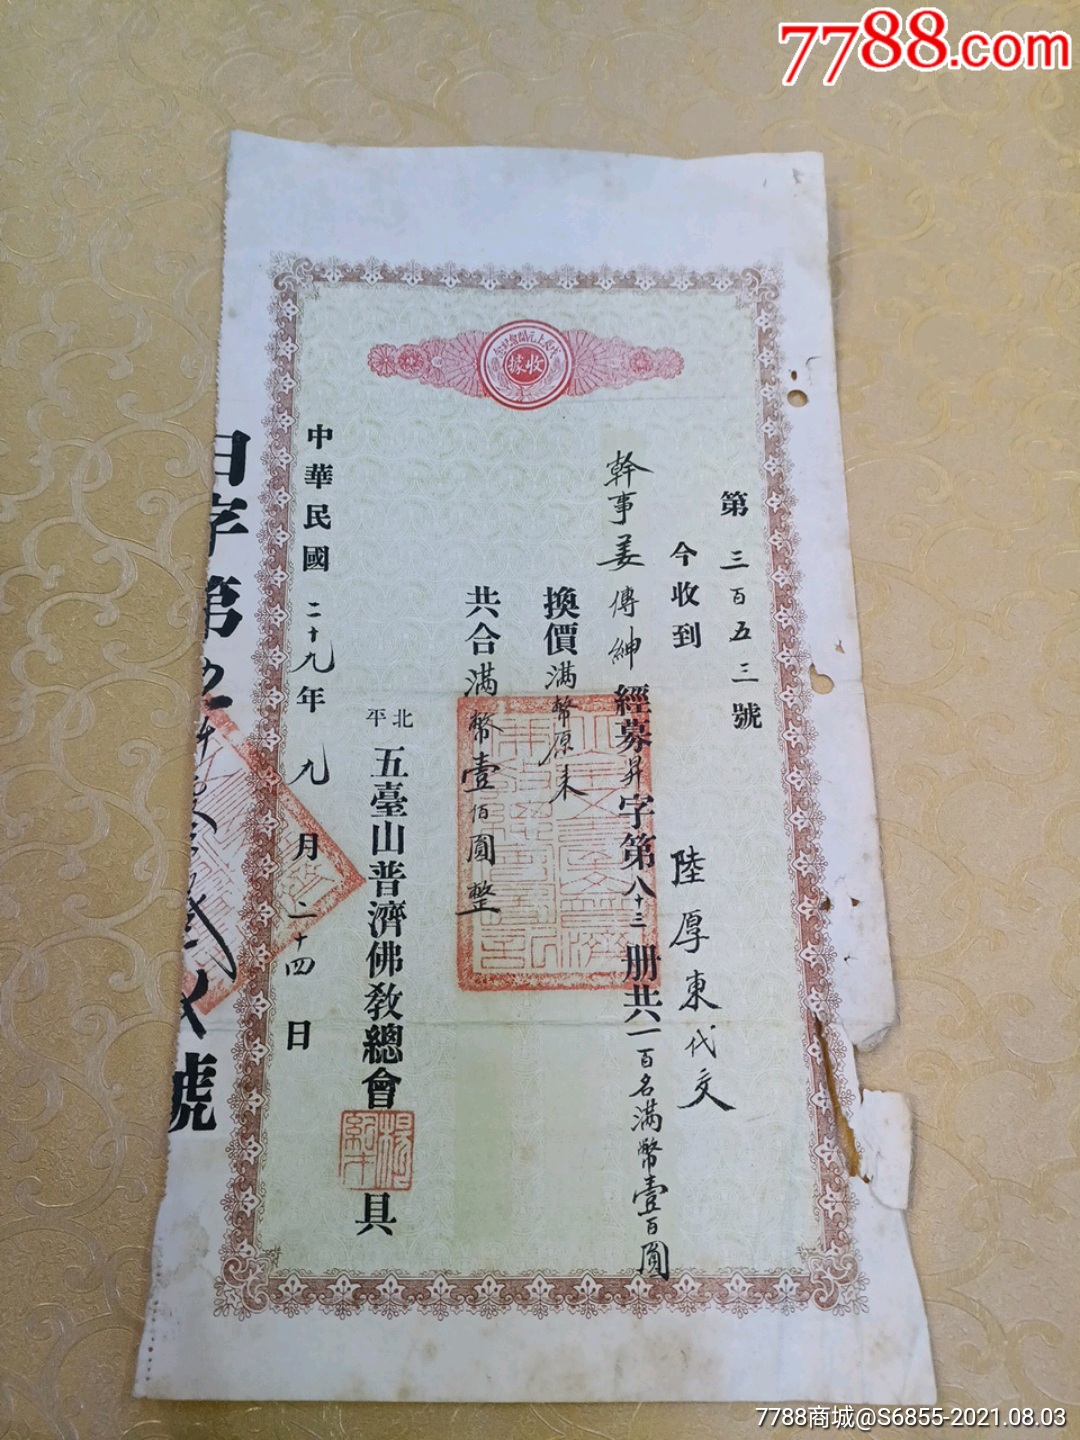 7788.com
收據
第三百五三號
今收到 陸厚東代交
幹事姜傳紳經募昇字第八十三册共一百名滿幣壹百圓
換價滿幣原来
共合滿幣壹佰圓整
北平
五臺山普濟佛教總會
具
中華民國二十九年九月二十四日
號
7788商城@S6855-2021.08.03